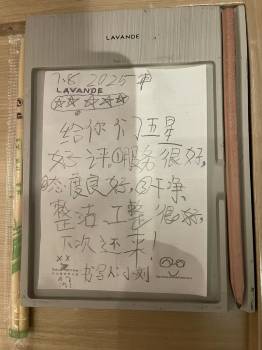 LAVANDE
7.8.2025
LAVANDE
给你们五星
好评①服务很好,
②态度良好,③干净
整洁工整很好,
下次还来!
书写人:小刘